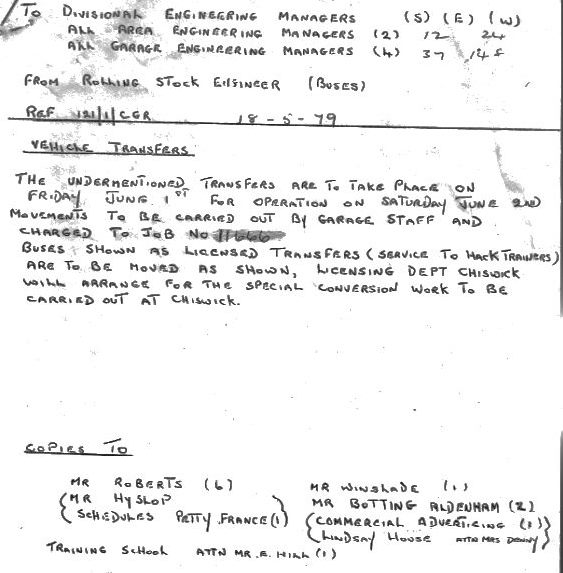 To DIVISIONAL ENGINEERING MANAGERS (S) (E) (W)
ALL AREA ENGINEERING MANAGERS (2) 12 24
ALL GARAGE ENGINEERING MANAGERS (4) 37 148
FROM ROLLING STOCK ENGINEER (BUSES)
REF 121/1/CGR 18-5-79
VEHICLE TRANSFERS
THE UNDERMENTIONED TRANSFERS ARE TO TAKE PLACE ON
FRIDAY JUNE 1ST FOR OPERATION ON SATURDAY JUNE 2ND
MOVEMENTS TO BE CARRIED OUT BY GARAGE STAFF AND
CHARGED TO JOB NO 11666
BUSES SHOWN AS LICENSED TRANSFERS (SERVICE TO HACK TRAINERS)
ARE TO BE MOVED AS SHOWN, LICENSING DEPT CHISWICK
WILL ARRANGE FOR THE SPECIAL CONVERSION WORK TO BE
CARRIED OUT AT CHISWICK.
COPIES TO
MR ROBERTS (6) MR WINSHADE (1)
MR HYSLOP MR BOTTING ALDENHAM (2)
SCHEDULES PETTY FRANCE (1) COMMERCIAL ADVERTICING (1)
LINDSAY HOUSE ATTN MRS DENNY
TRAINING SCHOOL ATTN MR. E. HILL (1)